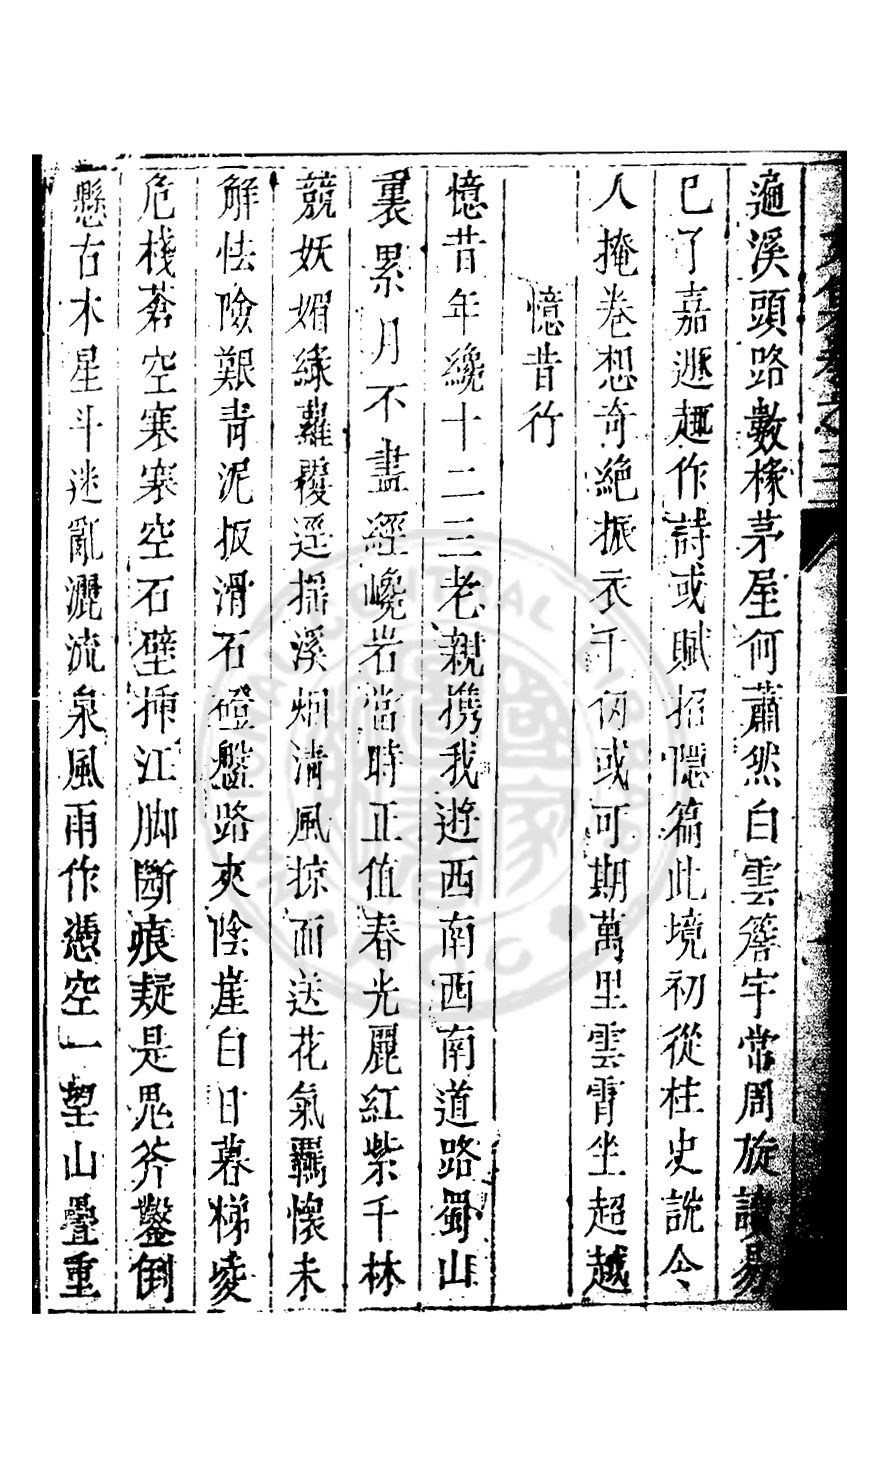 遍溪頭路數椽茅屋何蕭然白雲簷宇常周旋讀易
已了嘉遯趣作詩或賦招隱篇此境初從柱史說令
人掩卷想奇絕振衣千仞或可期萬里雲霄坐超越
憶昔行
憶昔年纔十二三老親携我遊西南西南道路蜀山
裏累月不盡經巉岩當時正值春光麗紅紫千林
競妖媚綠蘿覆逕揺溪烟清風掠面送花氣羈懷未
解怯險艱青泥坂滑石磴盤路夾陰崖白日暮梯凌
危棧蒼空寒寒空石壁揷江脚斷痕疑是鬼斧鑿倒
懸古木星斗迷亂灑流泉風雨作憑空一望山疊重
NATIONAL CENTRAL LIBRARY